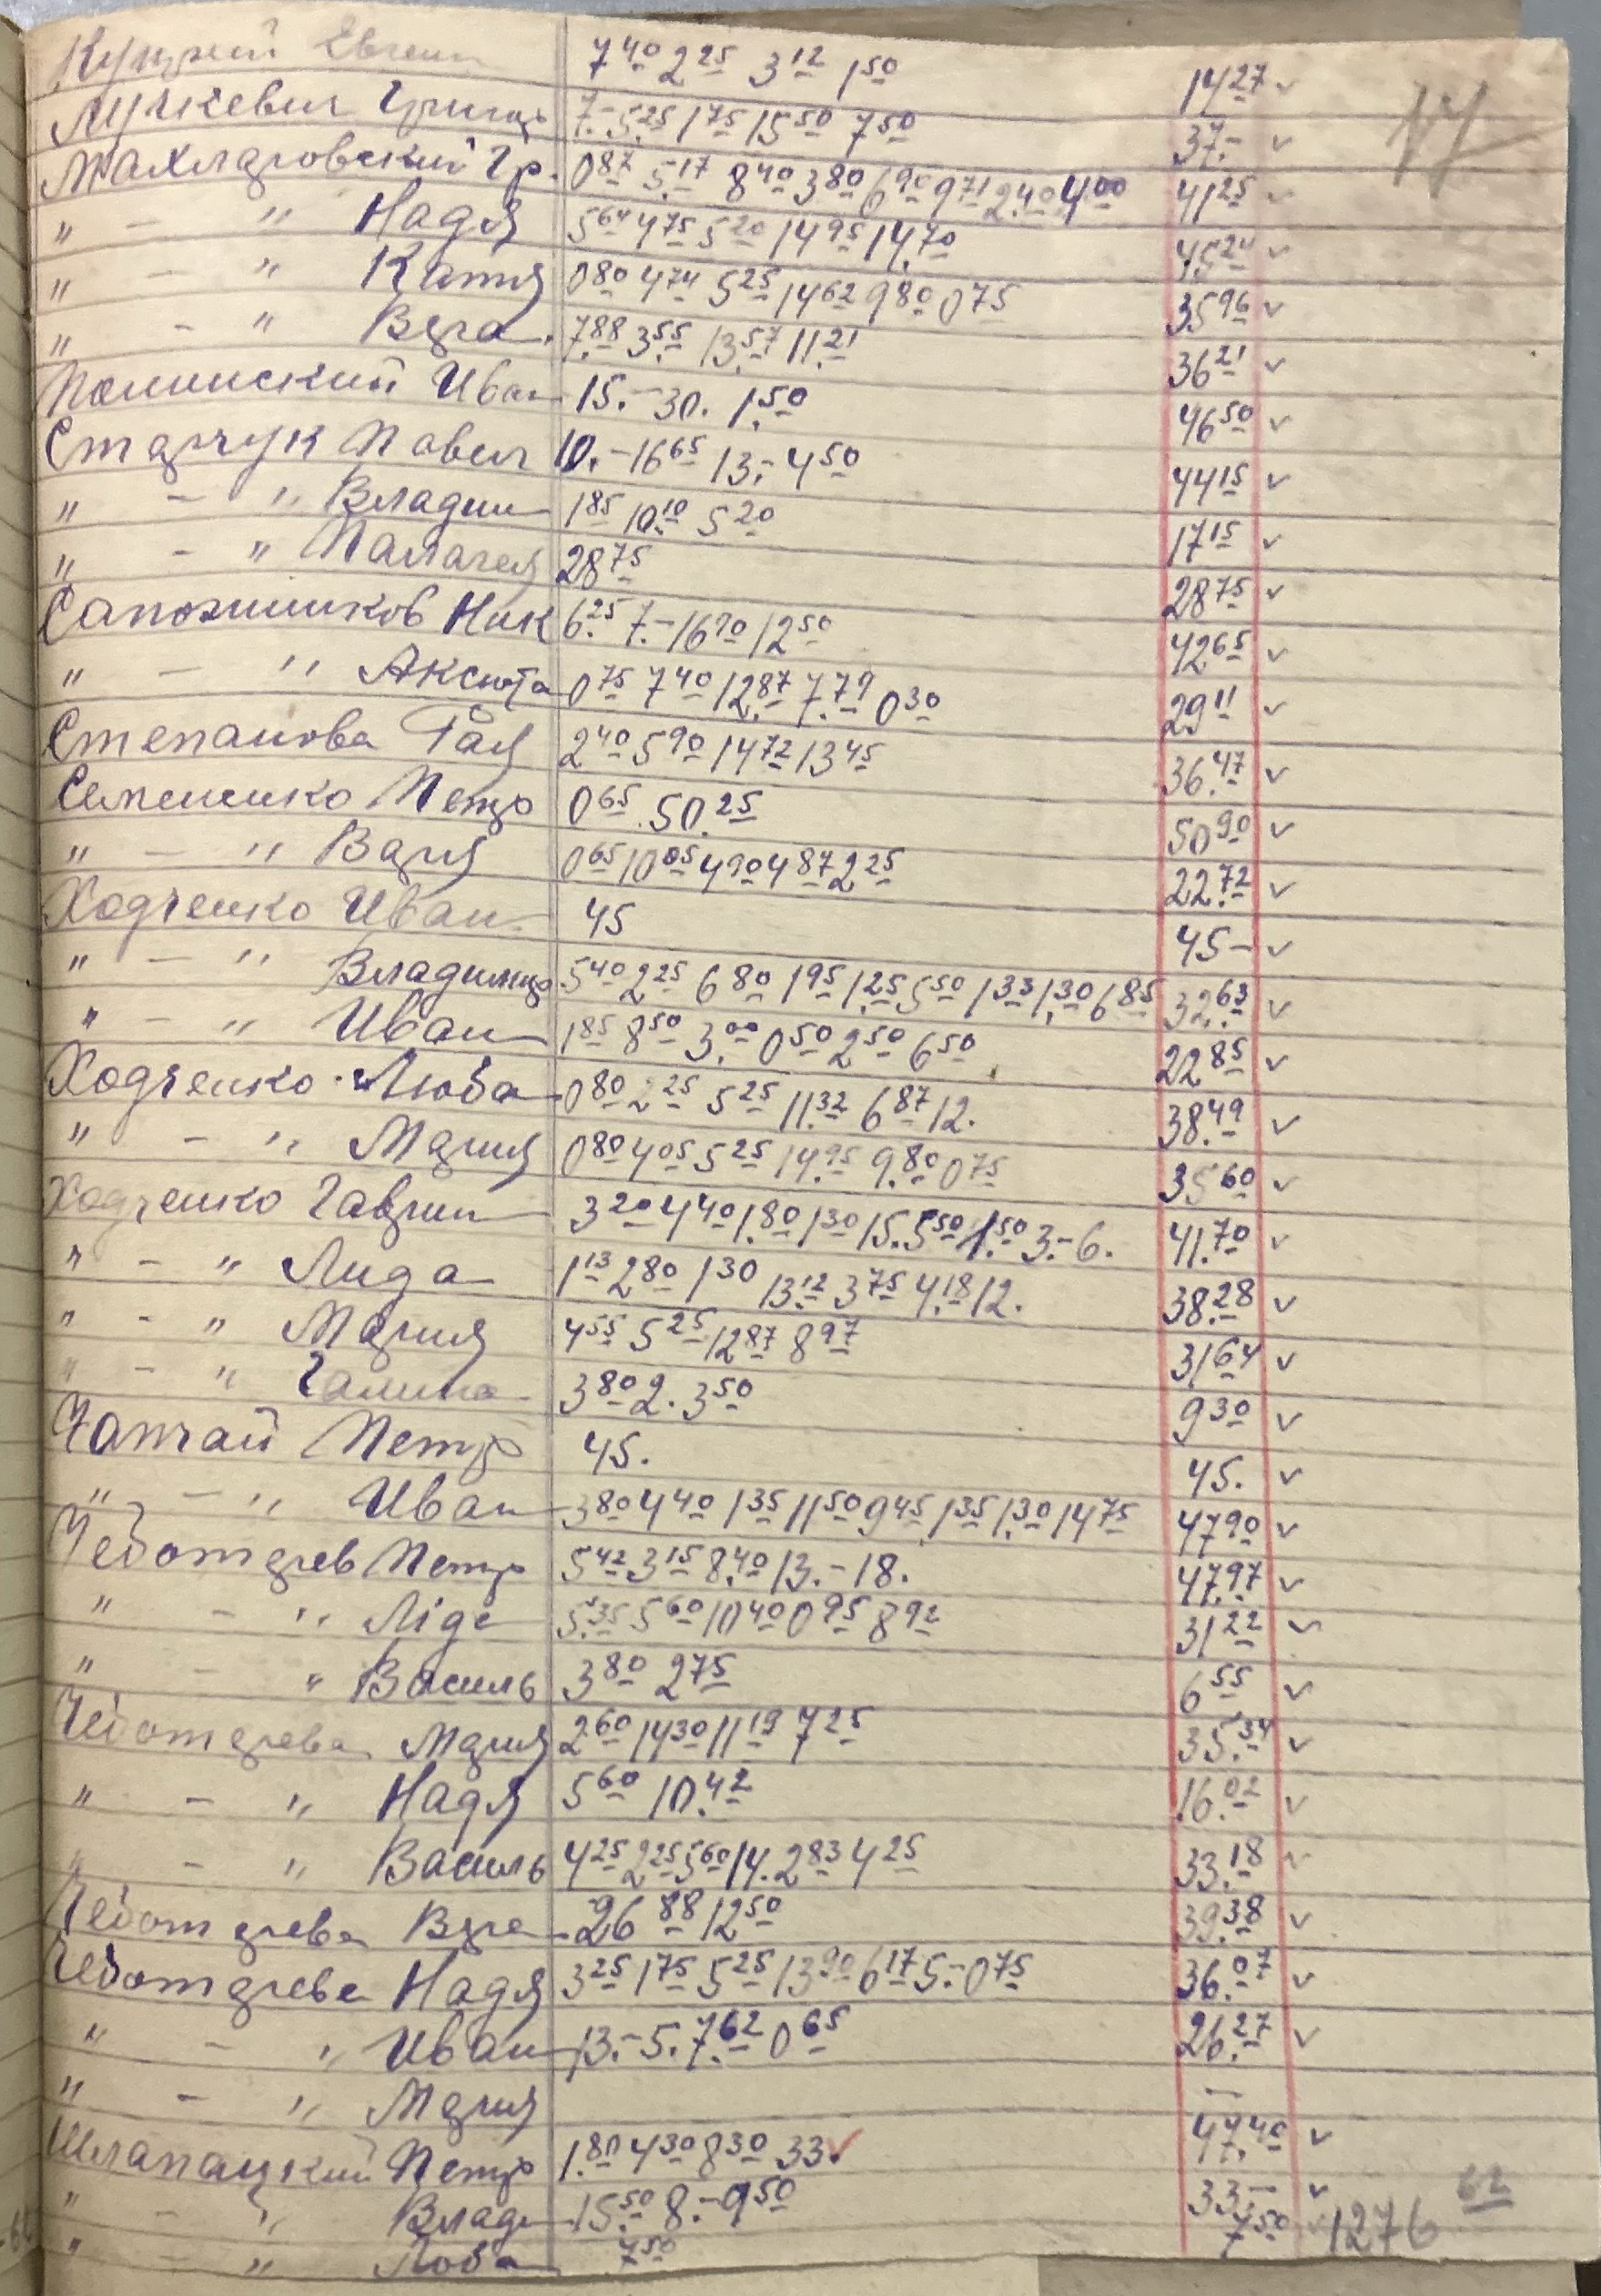 Куцрий Евгени 7 40 2 25 3 12 1 50 14 27 ✓
Лучкевич Григор 7.- 5.25 1 75 15 50 7 50 37.- ✓
Махларовский Гр. 0 87 5.17 8 40 3 80 6 90 9 71 2.40 4 00 41 25 ✓
" - " Надя 5 64 4 75 5 20 14 95 14.70 45 24 ✓
" - " Катя 0 80 4 74 5 25 14 62 9 80 0 75 35 96 ✓
" - " Вера. 7.88 3.55 13.57 11.21 36 21 ✓
Полинский Иван 15.- 30. 1.50 46 50 ✓
Старчук Павел 10.- 16 65 13.- 4 50 44 15 ✓
" - " Владим 1 85 10.10 5 20 17 15 ✓
" - " Палагея 28 75 28 75 ✓
Сапожников Ник 6.25 7.- 16 90 12 50 42 65 ✓
" - " Аксюта 0 75 7 40 12.87 7.79 0 30 29 11 ✓
Степанова Рая 2 40 5 90 14 72 13 45 36.47 ✓
Семененко Петро 0 65 50.25 50 90 ✓
" - " Варя 0 65 10 05 4 90 4 87 2 25 22.72 ✓
Ходченко Иван 45 45 - ✓
" - " Владимир 5 40 2 25 6 80 1 95 1.25 5 50 1 33 1.30 6 85 32.63 ✓
" - " Иван 1 85 8 50 3.00 0 50 2 50 6 50 22 85 ✓
Ходченко Люба 0 80 2 25 5 25 11.32 6 87 12. 38.49 ✓
" - " Мария 0 80 4 05 5 25 14.95 9.80 0 75 35 60 ✓
Ходченко Гаврил 3 20 4 40 1.80 1 30 15. 5 50 1.50 3.- 6. 41.70 ✓
" - " Лида 1 13 2 80 1 30 13.12 3 75 4.18 12. 38.28 ✓
" - " Мария 4 55 5 25 12 87 8 97 31 64 ✓
" - " Галина 3 80 2. 3 50 9 30 ✓
Чапчай Петр 45. 45. ✓
" - " Иван 3 80 4 40 1 35 11 50 9 45 1 35 1.30 14 75 47 90 ✓
Чеботарев Петр 5 42 3 15 8.40 13.- 18. 47.97 ✓
" - " Ліда 5.35 5 60 10 40 0 95 8 92 31 22 ✓
" - " Василь 3 80 2 75 6 55 ✓
Чеботарева Мария 2 60 14 30 11 19 7 25 35.34 ✓
" - " Надя 5 60 10.42 16.02 ✓
" - " Василь 4 25 2 25 5 60 14. 2 83 4 25 33.18 ✓
Чеботарева Вера 26 88 12 50 39.38 ✓
Чеботарева Надя 3 25 1 75 5 25 13 90 6 17 5.- 0 75 36.07 ✓
" - " Иван 13.- 5. 7.62 0 65 26.27 ✓
" - " Мария -
Шлапацкий Петр 1.80 4 30 8 30 33 ✓ 47.40 ✓
" - " Влади 15.50 8.- 9 50 33.- ✓
" - " Люба 7 50 7 50 ✓ 1276 62